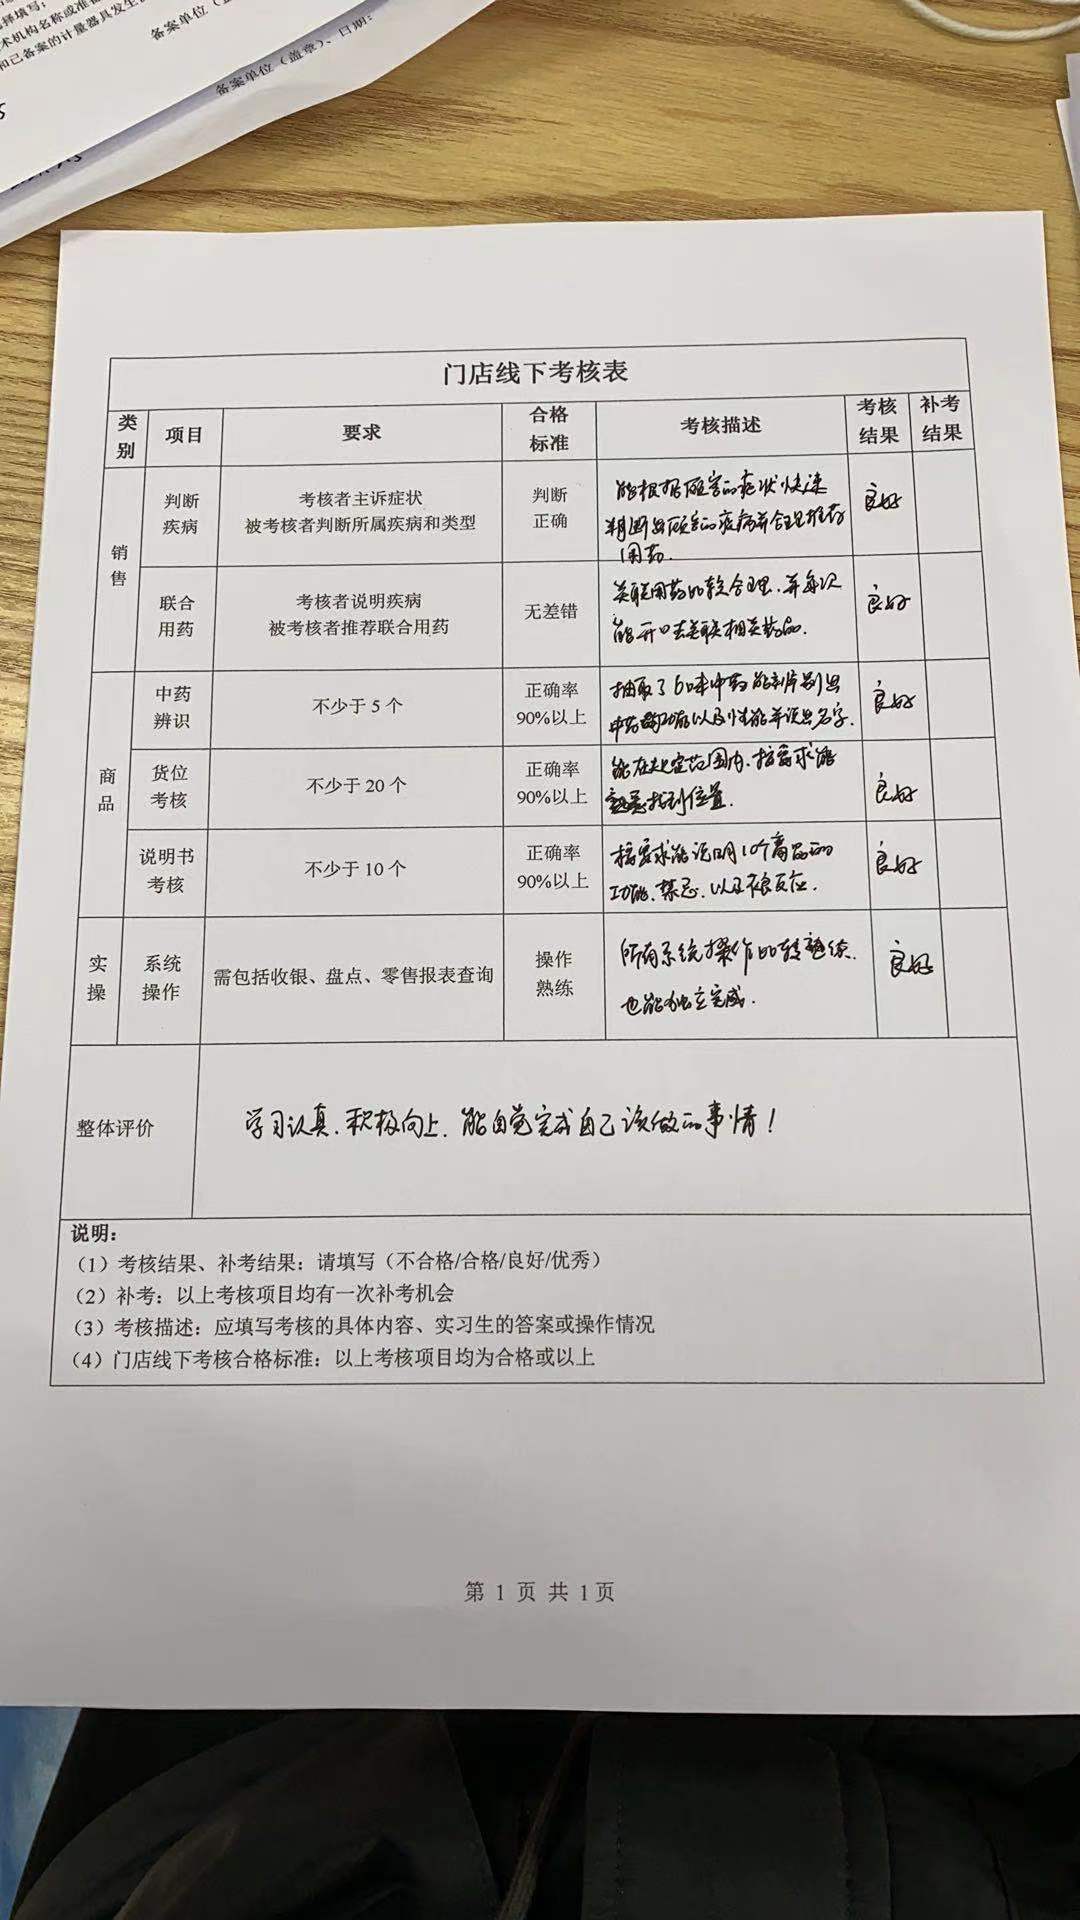 择填写;
术机构名称或准备
和已备案的计量器具发生
备案单位（盖
备案单位（盖章）、日期:
门店线下考核表
类别 项目 要求 合格标准 考核描述 考核结果 补考结果
销售
判断疾病
考核者主诉症状
被考核者判断所属疾病和类型
判断正确
能根据顾客的症状快速
判断出顾客的疾病并合理推荐
用药.
良好
联合用药
考核者说明疾病
被考核者推荐联合用药
无差错
关联用药比较合理.并每次
能开口去关联相关药品.
良好
商品
中药辨识
不少于 5 个
正确率
90%以上
抽取了6味中药能辨别出
中药 功能以及性能并说出名字.
良好
货位考核
不少于 20 个
正确率
90%以上
能在规定范围内.按要求能
熟悉找到位置.
良好
说明书考核
不少于 10 个
正确率
90%以上
按要求能说明10个商品的
功能.禁忌.以及不良反应.
良好
实操
系统操作
需包括收银、盘点、零售报表查询
操作熟练
所有系统操作比较熟练.
也能独立完成.
良好
整体评价
学习认真.积极向上.能自觉完成自己该做的事情！
说明:
（1）考核结果、补考结果：请填写（不合格/合格/良好/优秀）
（2）补考：以上考核项目均有一次补考机会
（3）考核描述：应填写考核的具体内容、实习生的答案或操作情况
（4）门店线下考核合格标准：以上考核项目均为合格或以上
第 1 页 共 1 页